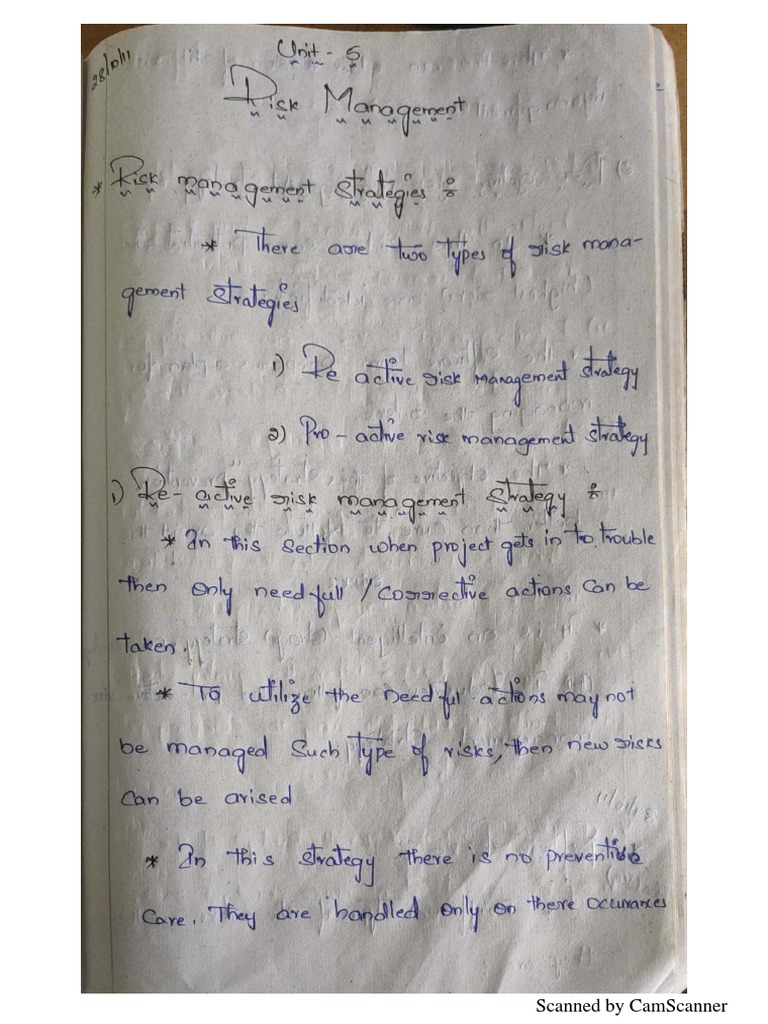 28/10/11
Unit - 5
Risk Management
* Risk management strategies :
* There are two types of risk mana-
gement strategies
1) Re active risk management strategy
2) Pro - active risk management strategy
1) Re - active risk management strategy :
* In this section when project gets in to trouble
then only needfull / corrective actions can be
taken.
* To utilize the needful actions may not
be managed such type of risks, then new risks
can be arised
* In this strategy there is no preventive
care. They are handled only on there occurances
Scanned by CamScanner